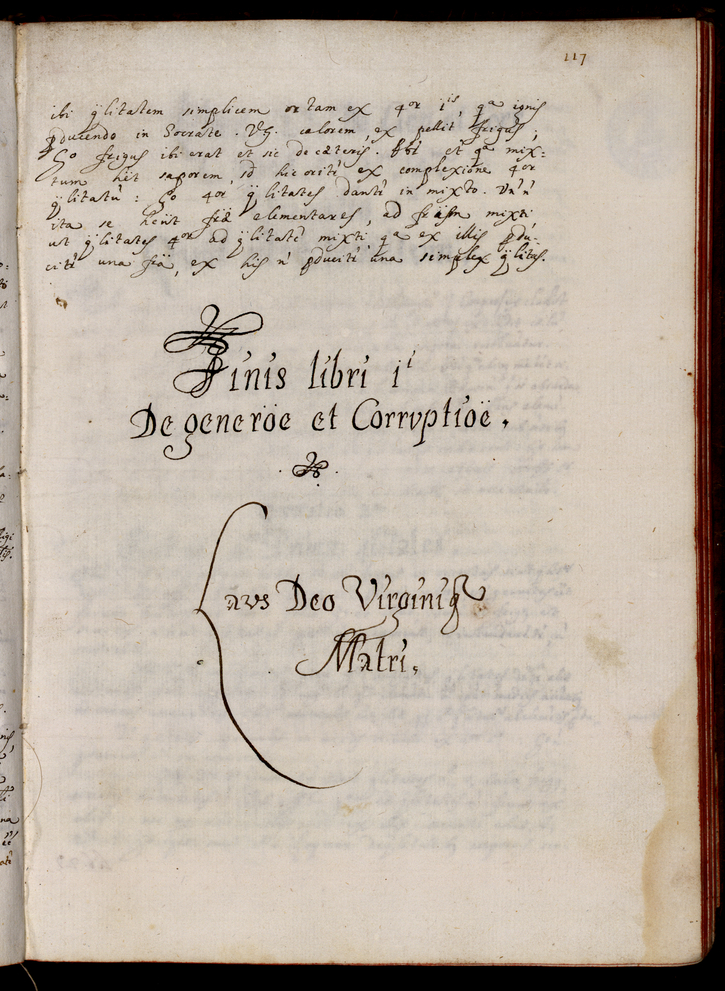 117
ibi q̃litatem simplicem ortam ex 4or iis, qa ignis
pducendo in Socrate . V.G. calorem, ex pellit frigus,
Go frigus ibi erat et sic de cæteris. et qa mix=
tum hēt saporem, sd hic oritr ex complexione 4or
q̃litatū : Go 4or q̃litates dantr in mixto.
ita se hēnt frã elementares, ad frãm mixti
ut q̃litates 4or ad q̃litatē mixti, qa ex illis pdu=
citr una frã, ex his n̄ pducitr una simplex q̃litas.
Finis libri ii
De generõe et Corrvptiõe.
Lavs Deo Virginiq
Matri.